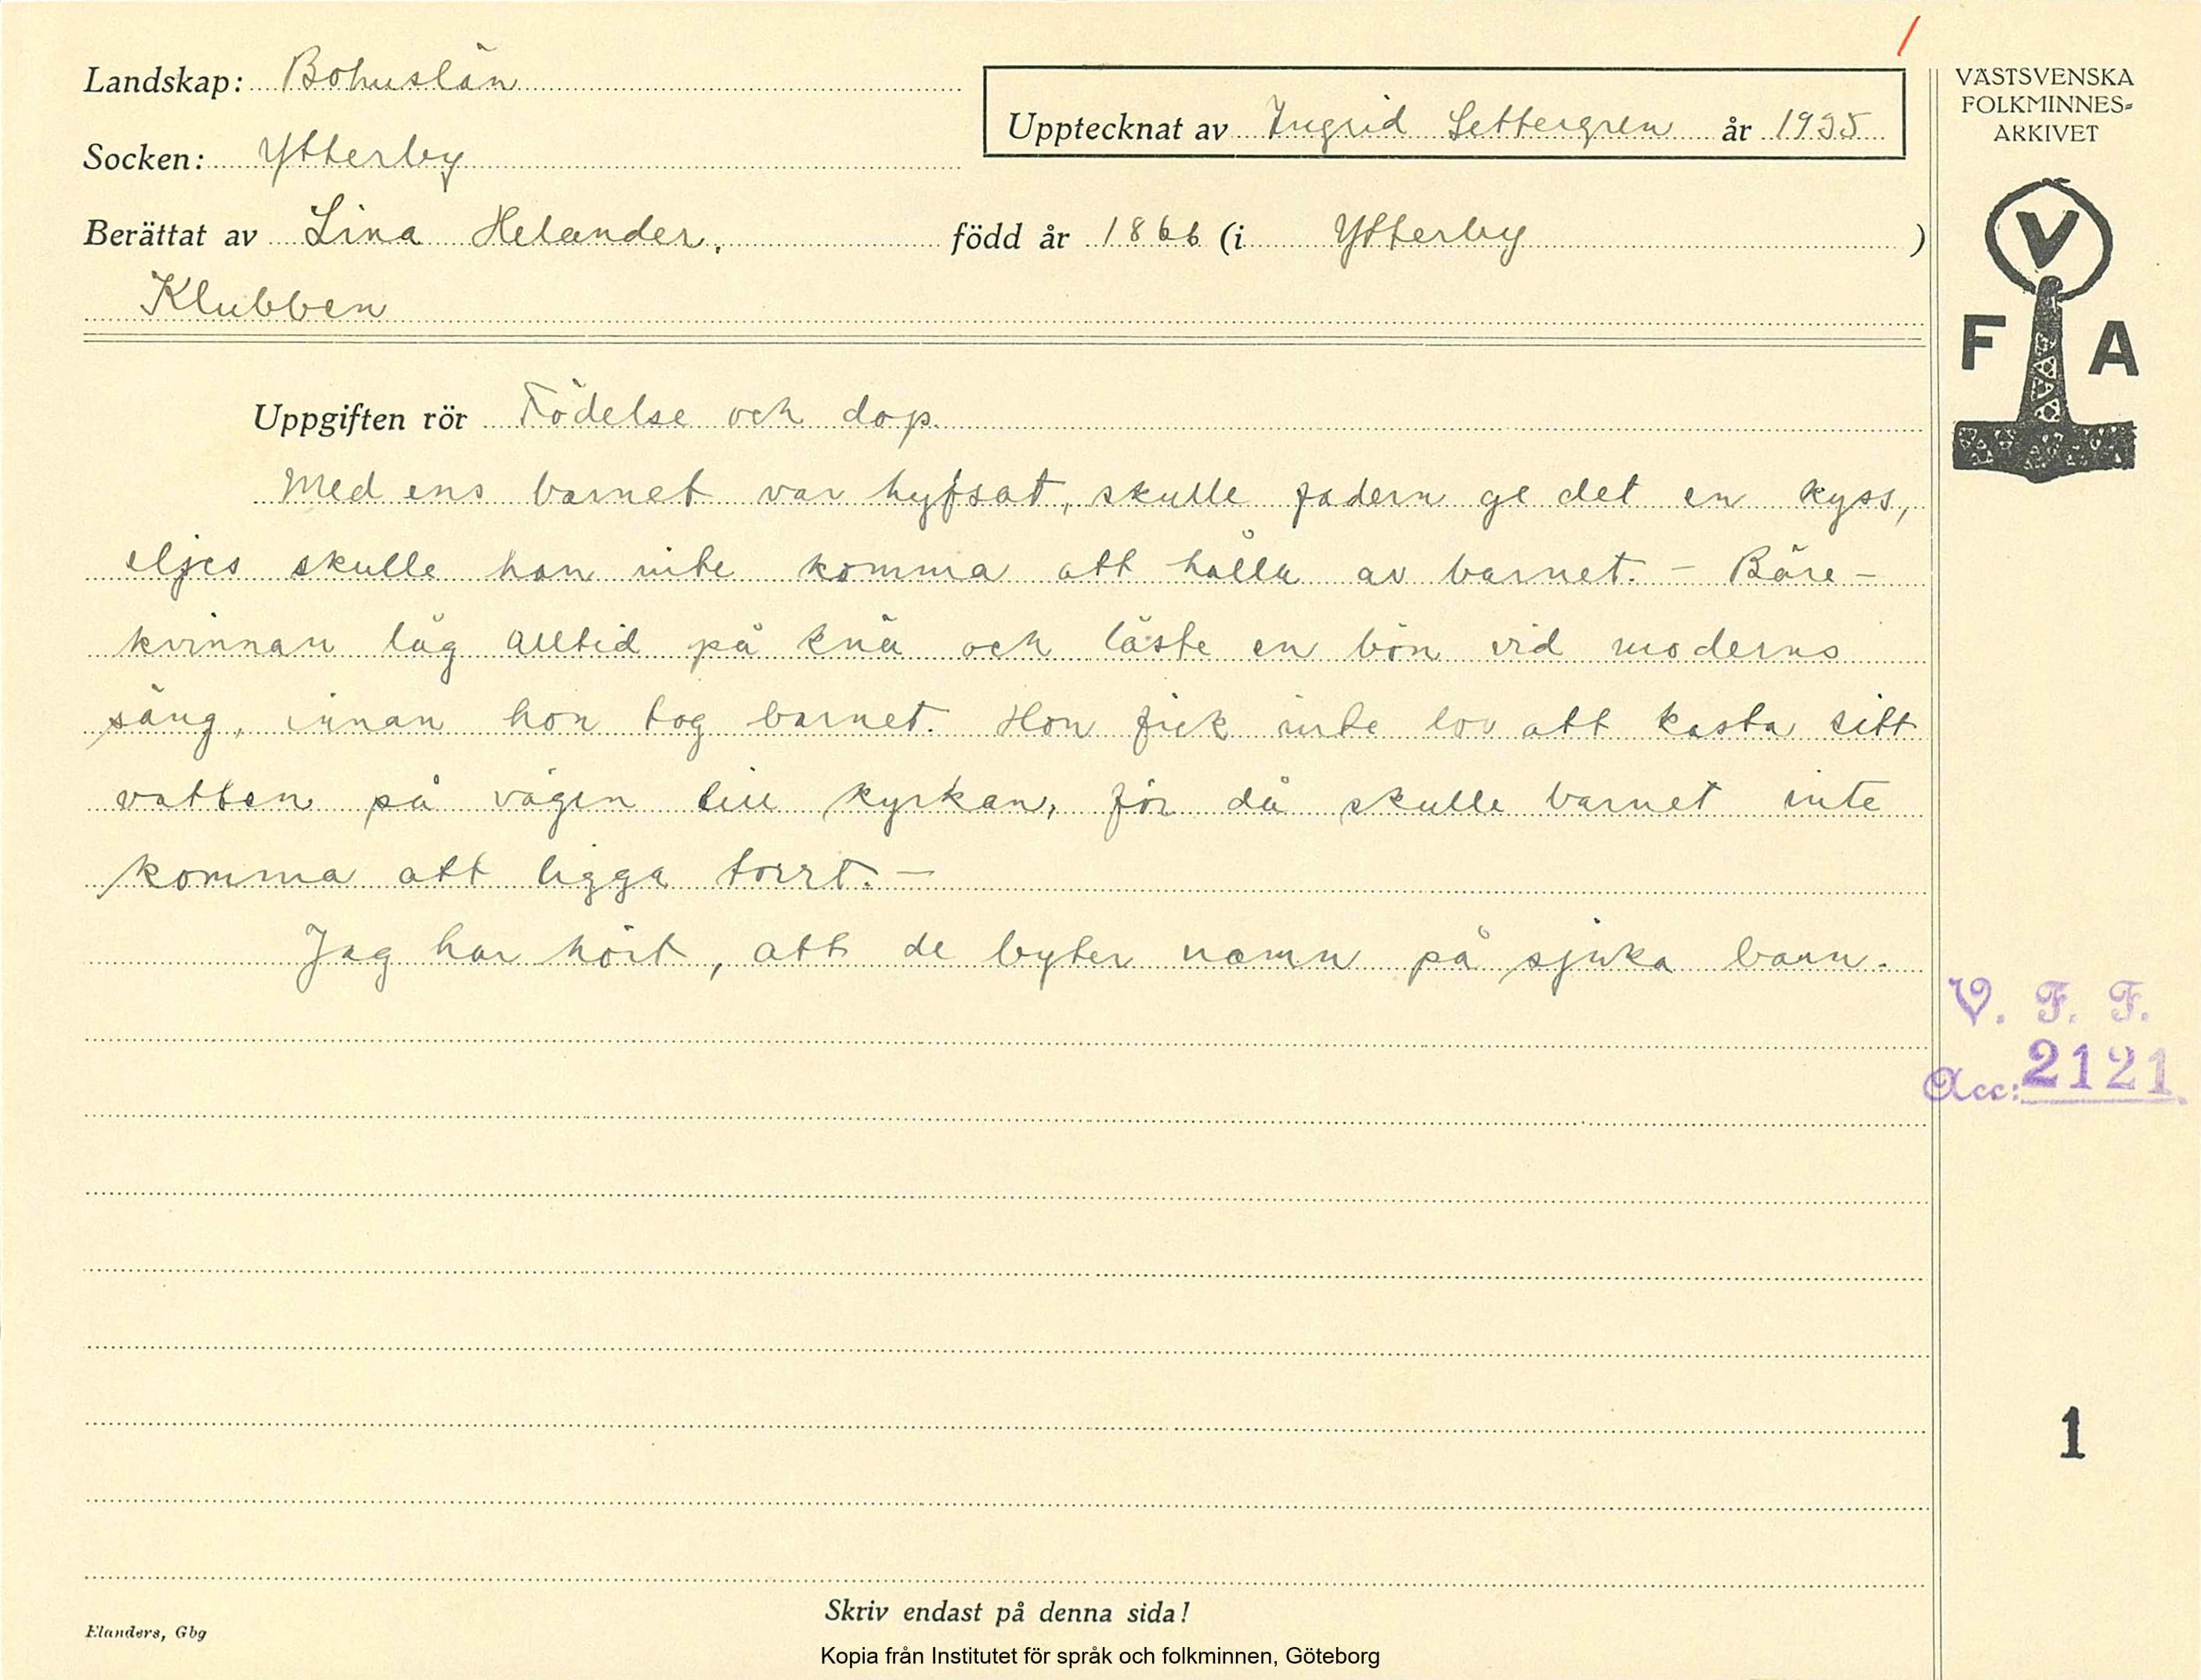 Landskap: Bohuslän
Socken: Ytterby
Upptecknat av Ingrid Settergren år 1935
Berättat av Lina Helander, född år 1866 (i Ytterby )
Klubben
Uppgiften rör Födelse och dop.
Med ens barnet var hyfsat, skulle fadern ge det en kyss,
eljes skulle han inte komma att hålla av barnet. – Bäre-
kvinnan låg alltid på knä och läste en bön vid moderns
säng, innan hon tog barnet. Hon fick inte lov att kasta sitt
vatten på vägen till kyrkan, för då skulle barnet inte
komma att ligga torrt. –
Jag har hört, att de byter namn på sjuka barn.
VÄSTSVENSKA
FOLKMINNES-
ARKIVET
V
F A
V. F. F.
Acc: 2121
1
Skriv endast på denna sida!
Elanders, Gbg
Kopia från Institutet för språk och folkminnen, Göteborg